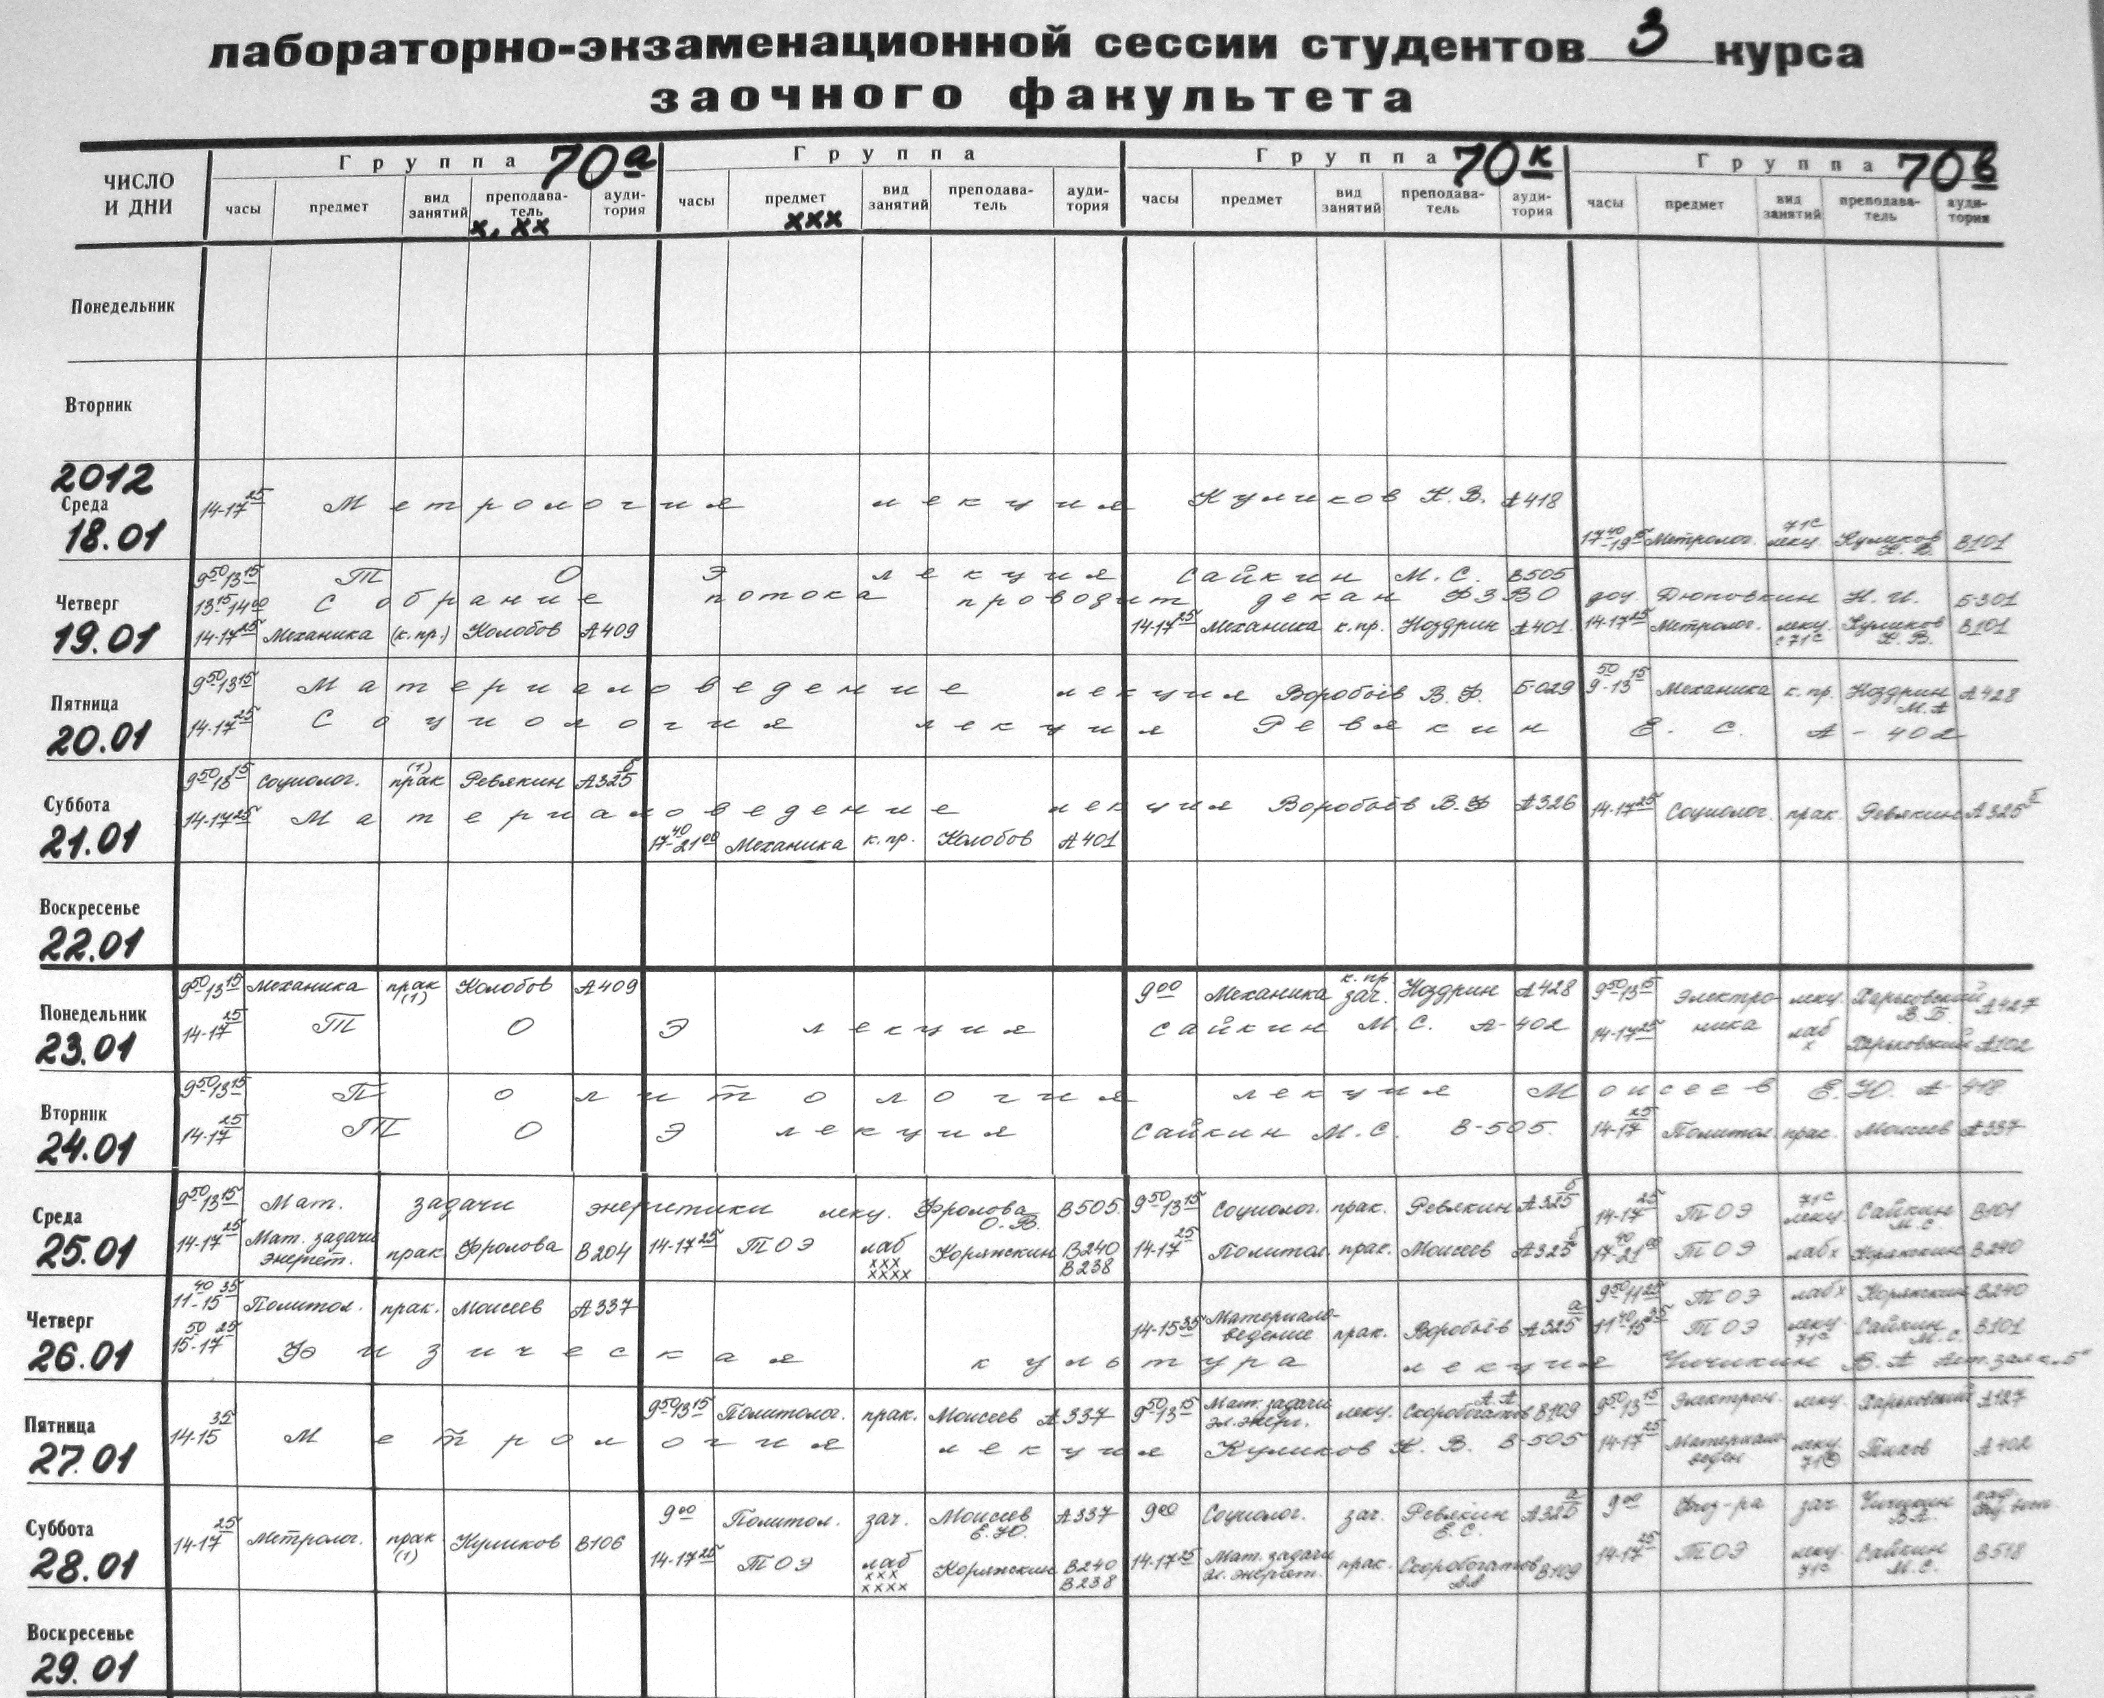 лабораторно-экзаменационной сессии студентов 3 курса
заочного факультета
ЧИСЛО И ДНИ
Группа 70а Группа Группа 70к Группа 70в
часы предмет вид занятий преподава-тель ауди-тория часы предмет вид занятий преподава-тель ауди-тория часы предмет вид занятий преподава-тель ауди-тория часы предмет вид занятий преподава-тель ауди-тория
х, хх ххх
Понедельник
Вторник
2012
Среда
18.01
14-17 25 Метрология лекция Куликов К.В. А418
17 40-19 15 Метролог. 71с лекц. Куликов К.В. В101
Четверг
19.01
9 50 13 15 ТОЭ лекция Сайкин М.С. В505
13 15 14 00 Собрание потока проводит декан ФЗВО доц. Дюповкин Н.И. Б-301
14-17 25 Механика (к.пр.) Колобов А409 14-17 25 Механика к.пр. Ноздрин А401 14-17 25 Метролог. лекц с71с Куликов К.В. В101
Пятница
20.01
9 50 13 15 Материаловедение лекция Воробьёв В.Ф. Б-029 9 50-13 15 Механика к.пр. Ноздрин М.А А428
14-17 25 Социология лекция Ревякин Е.С. А-402
Суббота
21.01
9 50 13 15 Социолог. (1) прак Ревякин А325б
14-17 25 Материаловедение лекция Воробьёв В.Ф А326 14-17 25 Социолог. прак. Ревякин А325б
17 40-21 00 Механика к.пр. Колобов А401
Воскресенье
22.01
Понедельник
23.01
9 50 13 15 Механика прак (1) Колобов А409 9 00 Механика к.пр. зач. Ноздрин А428 9 50 13 15 Электро- лекц. Харьковский В.Б. А427
14-17 25 ТОЭ лекция Сайкин М.С. А-402 14-17 25 ника лаб х Харьковский А102
Вторник
24.01
9 50 13 15 Политология лекция Моисеев Е.Ю. А-418
14-17 25 ТОЭ лекция Сайкин М.С. В-505. 14-17 25 Политол. прак. Моисеев А337
Среда
25.01
9 50 13 15 Мат. задачи энергетики лекц. Фролова О.В. В505 9 50 13 15 Социолог. прак. Ревякин А325б 14-17 25 ТОЭ 71с лекц Сайкин М.С. В101
14-17 25 Мат. задачи энергет. прак Фролова В204 14-17 25 ТОЭ лаб ххх хххх Коряжкин В240 В238 14-17 25 Политол. прак. Моисеев А325б 17 40-21 00 ТОЭ лаб х Коряжкин В240
Четверг
26.01
11 40-15 35 Политол. прак. Моисеев А337 9 50 11 25 ТОЭ лаб х Коряжкин В240
14-15 35 Материало-ведение прак. Воробьёв А325а 11 40 15 35 ТОЭ лекц 71с Сайкин М.С. В101
15 50-17 25 Физическая культура лекция Чичикин В.А Акт.зал к."Б"
Пятница
27.01
9 50 13 15 Политолог. прак. Моисеев А337 9 50 13 15 Мат. задачи эл.энерг. лекц. Скоробогатов А.А В109 9 50 13 15 Электрон. лекц. Харьковский А127
14-15 35 Метрология лекция Куликов К.В. В-505 14-17 25 Материало-веден лекц А402
Суббота
28.01
9 00 Политол. зач. Моисеев Е.Ю. А337 9 00 Социолог. зач. Ревякин Е.С. А325а 9 00 Физ-ра зач Чичикин В.А.
14-17 25 Метролог. прак (1) Куликов В106 14-17 25 ТОЭ лаб ххх хххх Коряжкин В240 В238 14-17 25 Мат. задачи эл. энергет. прак. Скоробогатов АА В109 14-17 25 ТОЭ лекц 71с Сайкин М.С. В518
Воскресенье
29.01